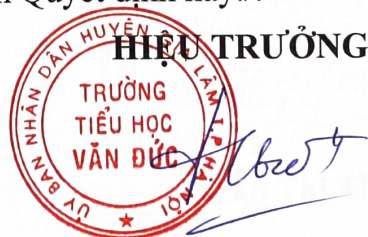 Quyết định này./.
HIỆU TRƯỞNG
ỦY BAN NHÂN DÂN HUYỆN LÂM T.P HÀ NỘI
TRƯỜNG
TIỂU HỌC
VĂN ĐỨC